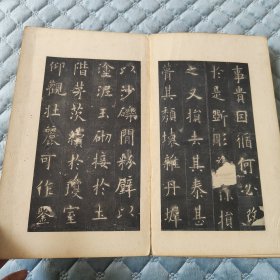 事貴因循何必改
於是斲彫為樸損
之又損去其泰甚
葺其頹壞雜丹墀
以沙礫間粉壁以
塗泥玉砌接於土
階茅茨續於瓊室
仰觀壯麗可作鑒